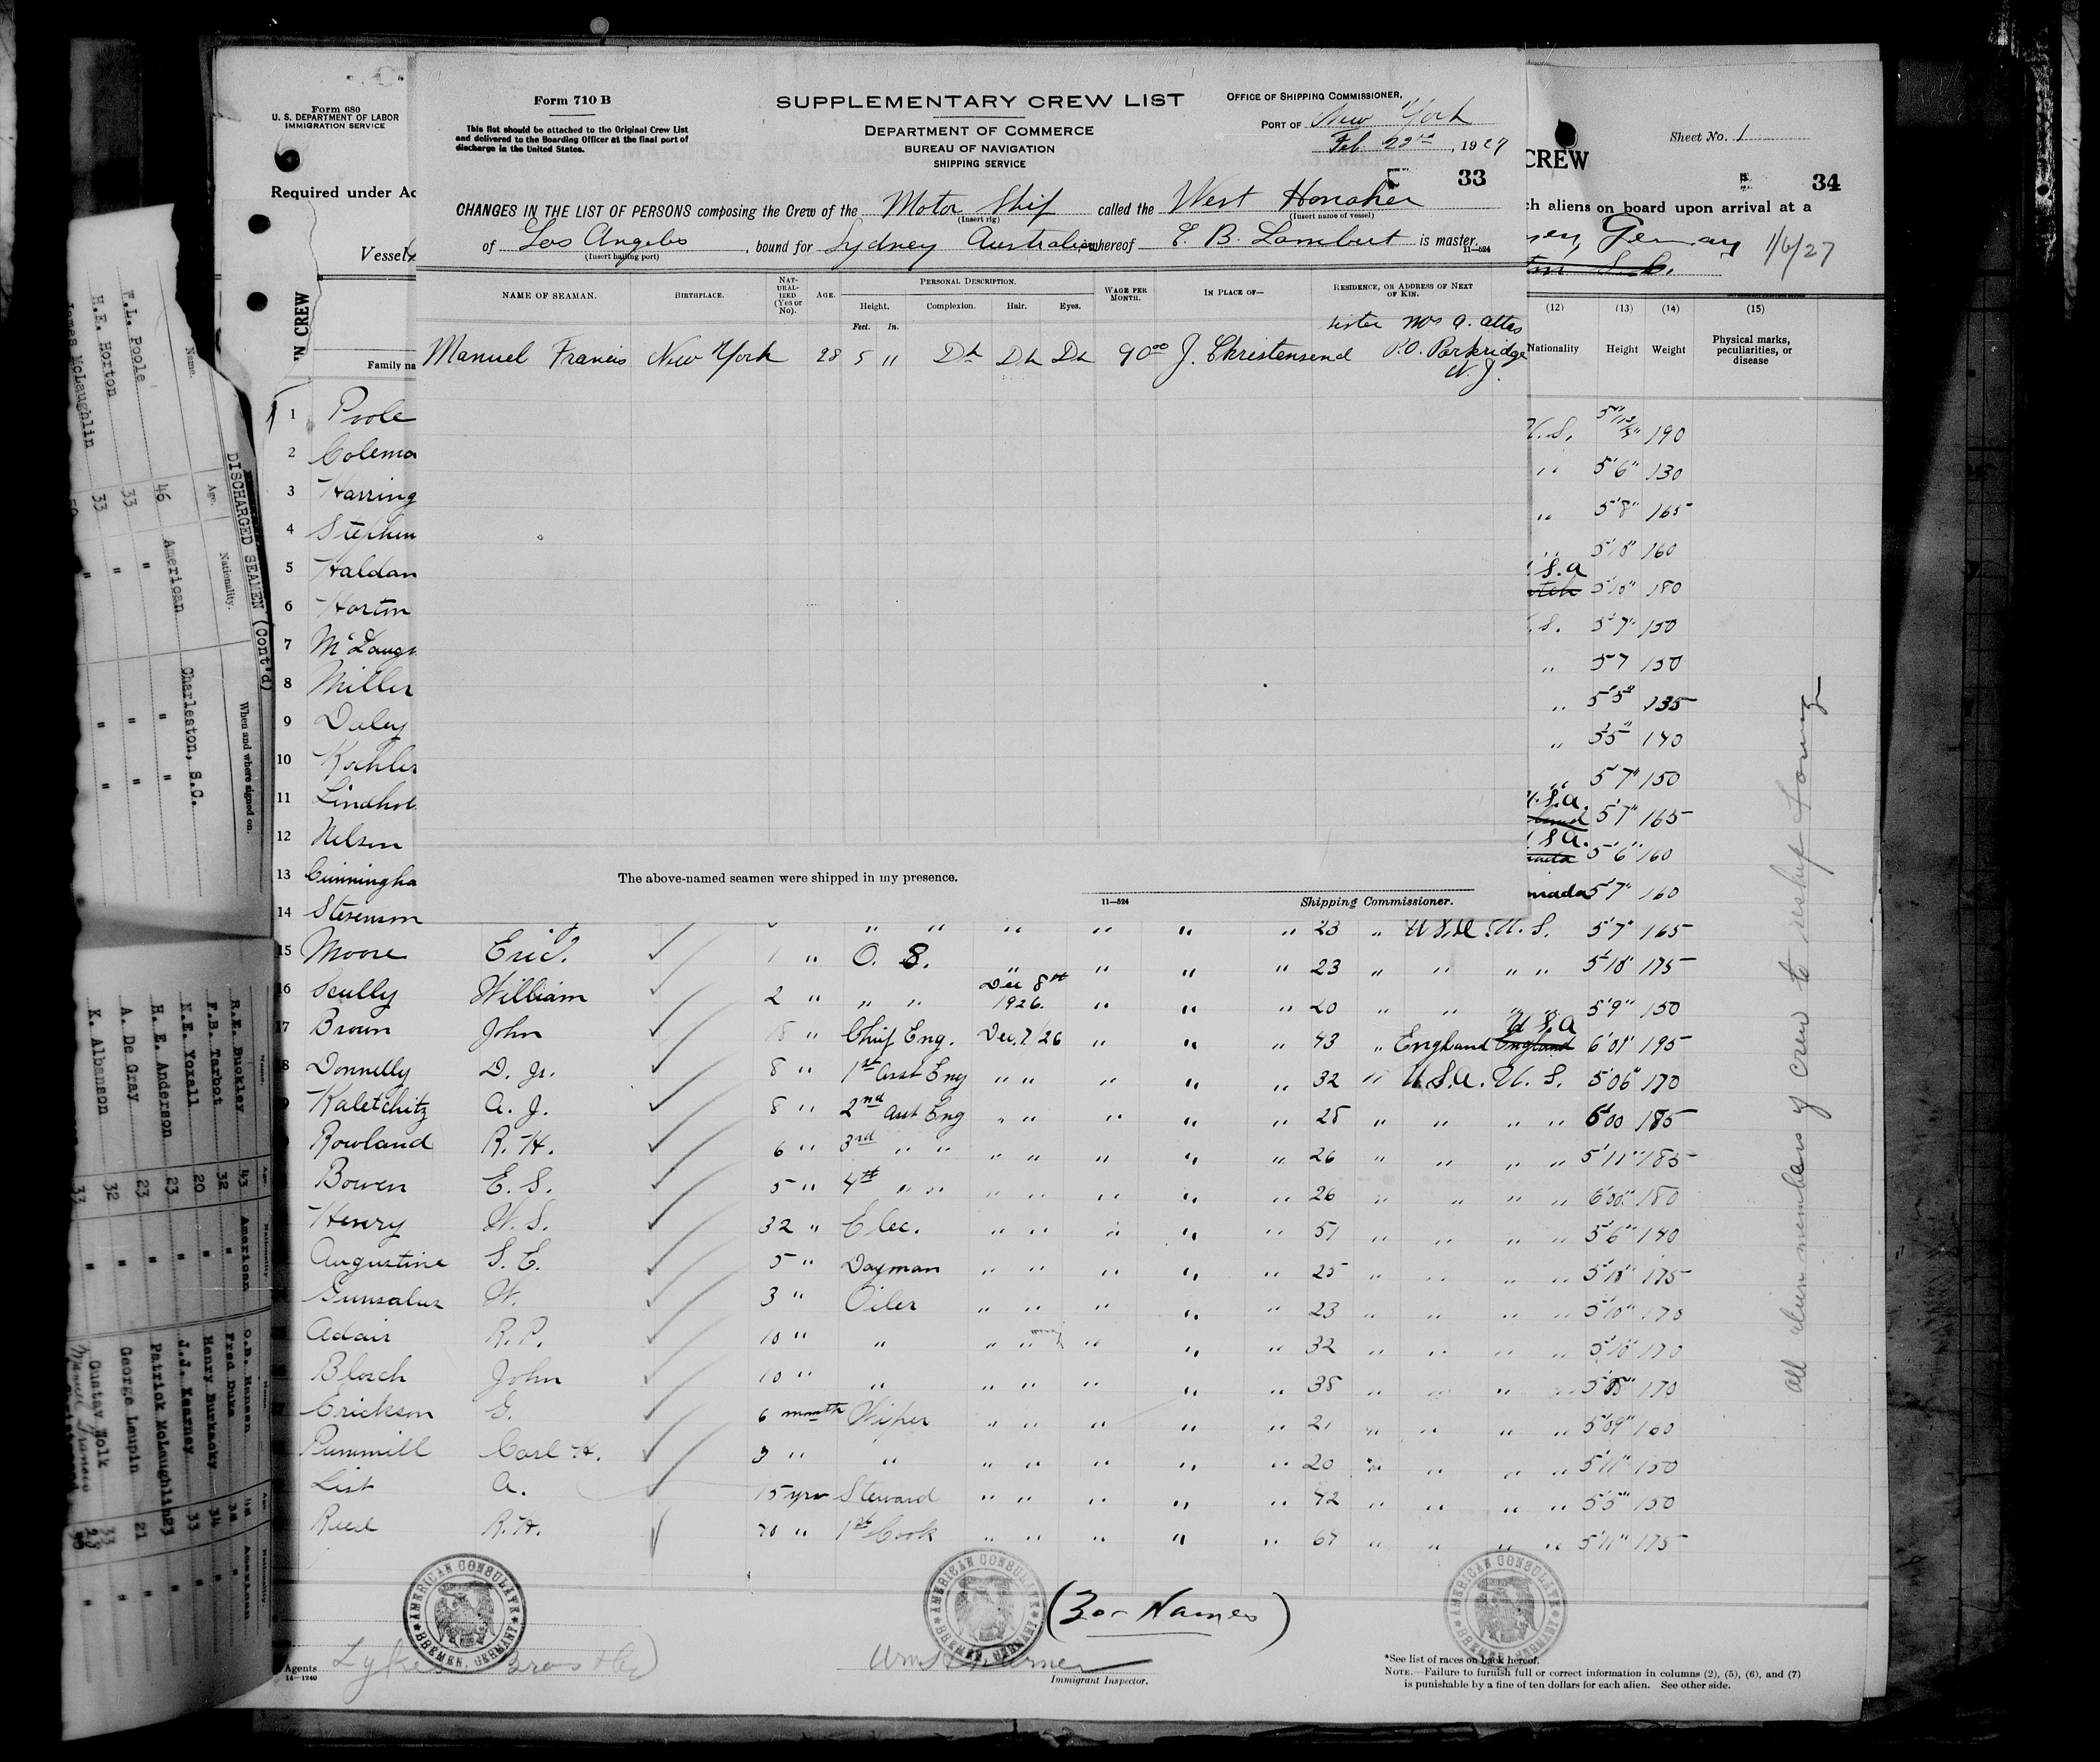 Form 710 B
This list should be attached to the Original Crew List
and delivered to the Boarding Officer at the final port of
discharge in the United States.
SUPPLEMENTARY CREW LIST
DEPARTMENT OF COMMERCE
BUREAU OF NAVIGATION
SHIPPING SERVICE
OFFICE OF SHIPPING COMMISSIONER,
PORT OF New York
Feb. 22nd, 1927
33
CHANGES IN THE LIST OF PERSONS composing the Crew of the Motor Ship called the West Honaker
(Insert rig) (Insert name of vessel)
of Los Angeles, bound for Sydney Australia whereof E. B. Lambert is master.
(Insert hailing port) 11—524
NAME OF SEAMAN. BIRTHPLACE. NAT-URAL-IZED (Yes or No). AGE. PERSONAL DESCRIPTION. WAGE PER MONTH. IN PLACE OF— RESIDENCE, OR ADDRESS OF NEXT OF KIN.
Height. Complexion. Hair. Eyes.
Feet. In.
sister Mrs A.
Manuel Francis New York 28 5 11 Dk Dk Dk 90.00 J. Christensend P.O. Parkridge
N.J.
The above-named seamen were shipped in my presence.
11—524 Shipping Commissioner.
Form 680
U. S. DEPARTMENT OF LABOR
IMMIGRATION SERVICE
Required under Ac
Vessel
N CREW
Family na
CREW
Sheet No. 1
34
ch aliens on board upon arrival at a
Germany 1/6/27
(12) (13) (14) (15)
Nationality Height Weight Physical marks, peculiarities, or disease
1 Poole U.S. 190
2 Colema " 5'6" 130
3 Harring " 5'8" 165
4 Stephen " 5'10" 160
5 Haldan S.A 5'10" 180
6 Horton S. 5'7" 150
7 McLaug " 5 7 150
8 Miller " 5'5" 135
9 Daley " 5'5" 140
10 Koehler " 5'7" 150
11 Lindhol U.S.A. 5'7" 165
12 Nelson S A. 5'6" 160
13 Cunningha nada 5'7" 160
14 Stevenson " " " " " " 23 " U.S.A. U.S. 5'7" 165
15 Moore Eric. 1 " O. S. " " " " 23 " " " " 5'10" 175
16 Scully William 2 " " " Dec 8th 1926. " " " 20 " " " " 5'9" 150
17 Brown John 18 " Chief Eng. Dec. 7/26 " " " 43 " England England U S A 6'01" 195
8 Donnelly D. Jr. 8 " 1st Asst Eng " " " " " 32 " U.S.A. U. S. 5'06" 170
Kaletchitz A. J. 8 " 2nd Asst Eng " " " " " 28 " " " " 6'00 185
Rowland R. H. 6 " 3rd " " " " " " " 26 " " " " 5'11" 185
Bowen E. S. 5 " 4th " " " " " " " 26 " " " " 6'00" 180
Henry W. S. 32 " Elec. " " " " " 51 " " " " 5'6" 140
Augustine S. E. 5 " Dayman " " " " " 25 " " " " 5'10" 175
Gunsalus W. 3 " Oiler " " " " " 23 " " " " 5'10" 175
Adair R. P. 10 " " " " " " " 32 " " " " 5'10" 170
Blosch John 10 " " " " " " " 38 " " " " 170
Erickson G. 6 month Wiper " " " " " 21 " " " " 5'09"
Pummill Carl H. 3 " " " " " " " 20 " " " " 5'11" 150
List A. 15 yrs Steward " " " " " 42 " " " " 5'5" 150
Reed R. H. 1st Cook " " " " " 64 " " " " 5'11" 175
All alien members of crew to reship foreign
AMERICAN CONSULATE
BREMEN, GERMANY
AMERICAN CONSULATE
BREMEN, GERMANY
AMERICAN CONSULATE
BREMEN, GERMANY
(30 - Names)
Agents Lykes Bros
14—1240
Immigrant Inspector.
*See list of races on back hereof.
NOTE.—Failure to furnish full or correct information in columns (2), (5), (6), and (7)
is punishable by a fine of ten dollars for each alien. See other side.
DISCHARGED SEAMEN (Cont'd)
Name. Age. Nationality. When and where signed on.
F.L. Poole 46 American Charleston, S.C.
H.E. Horton 33 " " "
James McLaughlin 33 " " "
Name. Age Nationality
R.E. Buckley 43 American
F.B. Tarbot 32 "
N.E. Yoxall 20 "
H. E. Anderson 23 "
A. De Gray 23 "
K. Albanson 32 "
33
O.B. Hansen American
Fred Duke 38 "
Henry Burkacky 34 "
J.J. Kearney 33 "
Patrick McLaughlin 23 "
George Laupin 21 "
Gustav Wolk 33 "
Manuel Francis